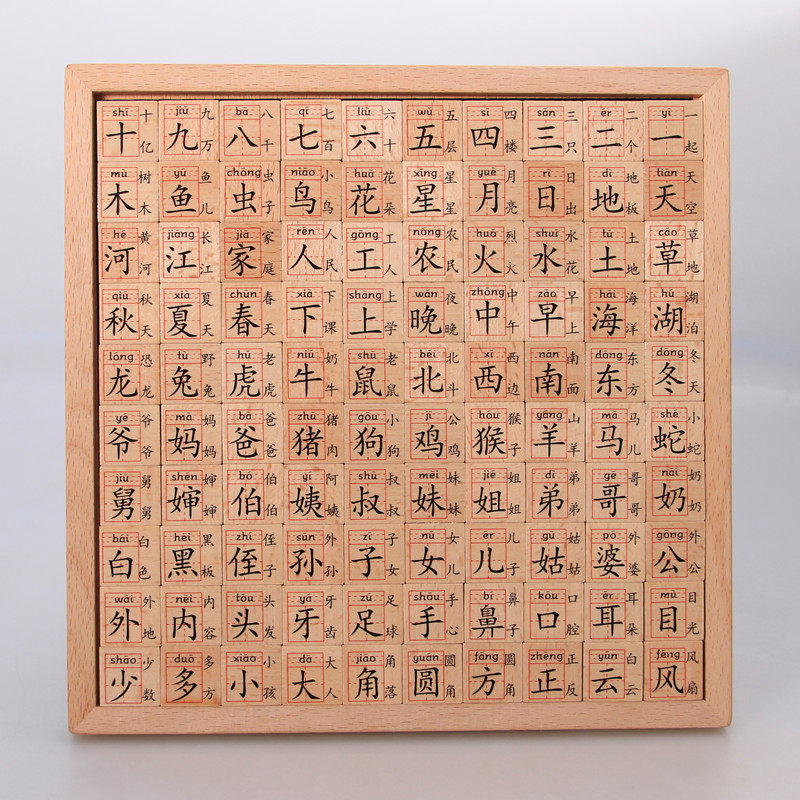 shí 十 十亿 jiǔ 九 九万 bā 八 八千 qī 七 七百 liù 六 六十 wǔ 五 五层 sì 四 四楼 sān 三 三只 èr 二 二个 yī 一 一起
mù 木 树木 yú 鱼 鱼儿 chóng 虫 虫子 niǎo 鸟 小鸟 huā 花 花朵 xīng 星 星星 yuè 月 月亮 rì 日 日出 dì 地 地板 tiān 天 天空
hé 河 黄河 jiāng 江 长江 jiā 家 家庭 rén 人 人民 gōng 工 工人 nóng 农 农民 huǒ 火 烈火 shuǐ 水 水花 tǔ 土 土地 cǎo 草 草地
qiū 秋 秋天 xià 夏 夏天 chūn 春 春天 xià 下 下课 shàng 上 上学 wǎn 晚 夜晚 zhōng 中 中午 zǎo 早 早上 hǎi 海 海洋 hú 湖 湖泊
lóng 龙 恐龙 tù 兔 野兔 hǔ 虎 老虎 niú 牛 奶牛 shǔ 鼠 老鼠 běi 北 北斗 xī 西 西边 nán 南 南面 dōng 东 东方 dōng 冬 冬天
yé 爷 爷爷 mā 妈 妈妈 bà 爸 爸爸 zhū 猪 猪肉 gǒu 狗 小狗 jī 鸡 公鸡 hóu 猴 猴子 yáng 羊 山羊 mǎ 马 马儿 shé 蛇 小蛇
jiù 舅 舅舅 shěn 婶 婶婶 bó 伯 伯伯 yí 姨 阿姨 shū 叔 叔叔 mèi 妹 妹妹 jiě 姐 姐姐 dì 弟 弟弟 gē 哥 哥哥 nǎi 奶 奶奶
bái 白 白色 hēi 黑 黑板 zhí 侄 侄子 sūn 孙 外孙 zǐ 子 子女 nǚ 女 女儿 ér 儿 儿子 gū 姑 姑姑 pó 婆 外婆 gōng 公 外公
wài 外 外地 nèi 内 内容 tóu 头 头发 yá 牙 牙齿 zú 足 足球 shǒu 手 手心 bí 鼻 鼻子 kǒu 口 口腔 ěr 耳 耳朵 mù 目 目光
shǎo 少 少数 duō 多 多方 xiǎo 小 小孩 dà 大 大人 jiǎo 角 角落 yuán 圆 圆角 fāng 方 圆角 zhèng 正 正反 yún 云 白云 fēng 风 风扇